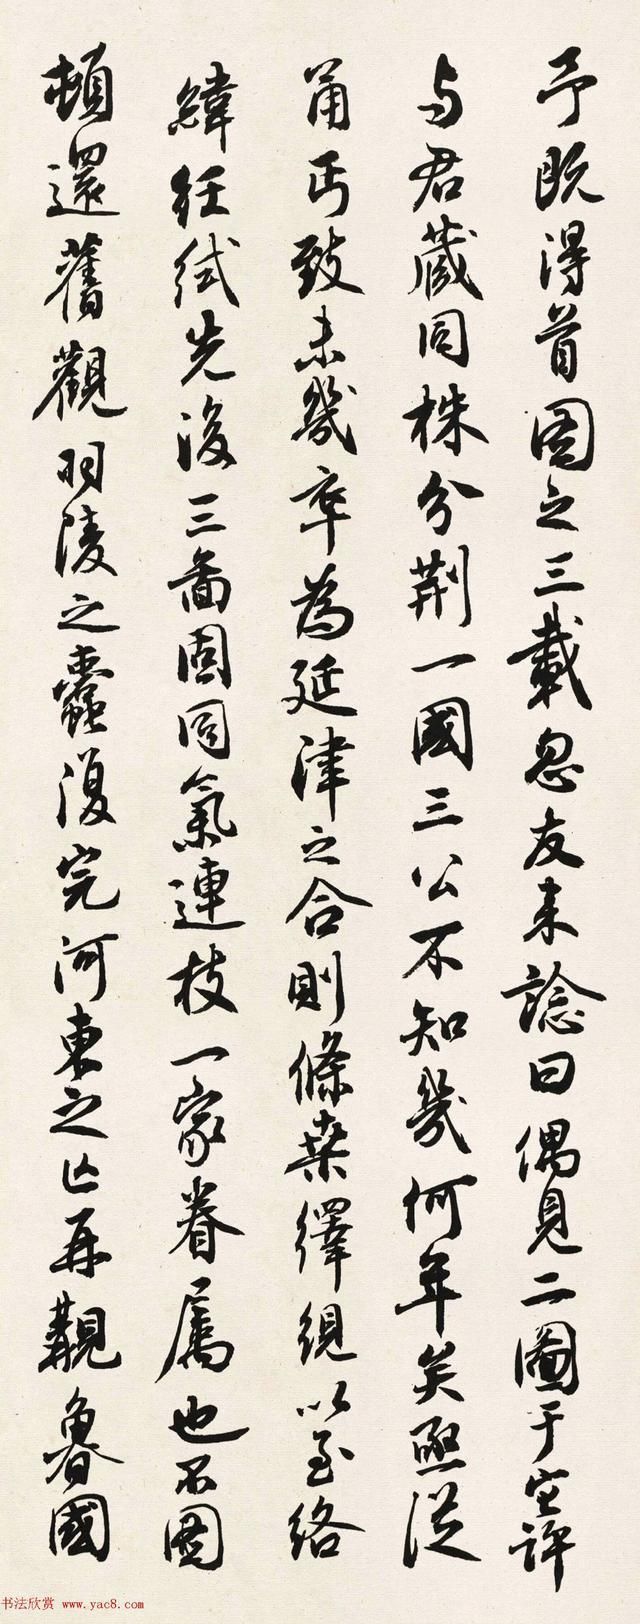 予既得首图之三載忽友来諗曰偶見二圖于許
与君蔵同株分荆一國三公不知幾何年矣亟従
甬丐致未幾卒為延津之合則條桑繹絸以至絡
緯絍先後三啚固同氣連枝一家眷屬也不圖
頓還舊觀羽陵之蠹復完河東之亡再覯魯國
书法欣赏 www.yac8.com